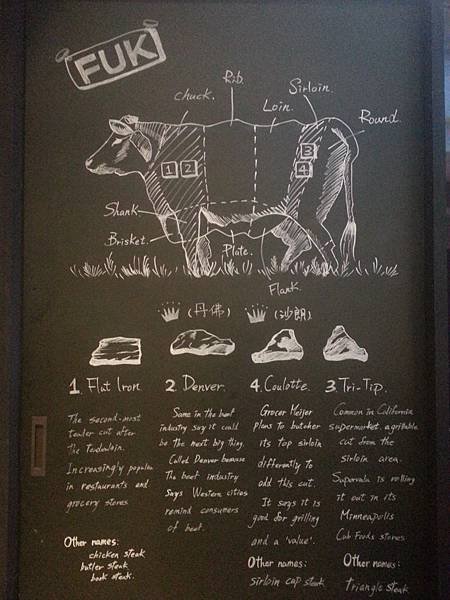 FUK
Rib.
Sirloin.
chuck.
Loin.
Round.
1 2
3
4
Shank
Brisket.
Plate.
Flank.
(丹佛)
(沙朗)
1. Flat Iron.
The second-most
tender cut after
The Tenderloin.
Increasingly popular
in restaurants and
grocery stores
Other names:
chicken steak
butler steak
book steak.
2. Denver.
Some in the beef
industry say it could
be the next big thing.
Called Denver because
The beef industry
Says Western cities
remind consumers
of beef.
4. Coulotte.
Grocer Meijer
plans to butcher
its top sirloin
differently to
add this cut.
It says it is
good for grilling
and a 'value'.
Other names:
Sirloin cap steak
3. Tri-Tip.
Common in California
supermarket. a grillable
cut from the
sirloin area.
Supervalu is rolling
it out in its
Minneapolis
Cub Foods stores
Other names:
Triangle steak